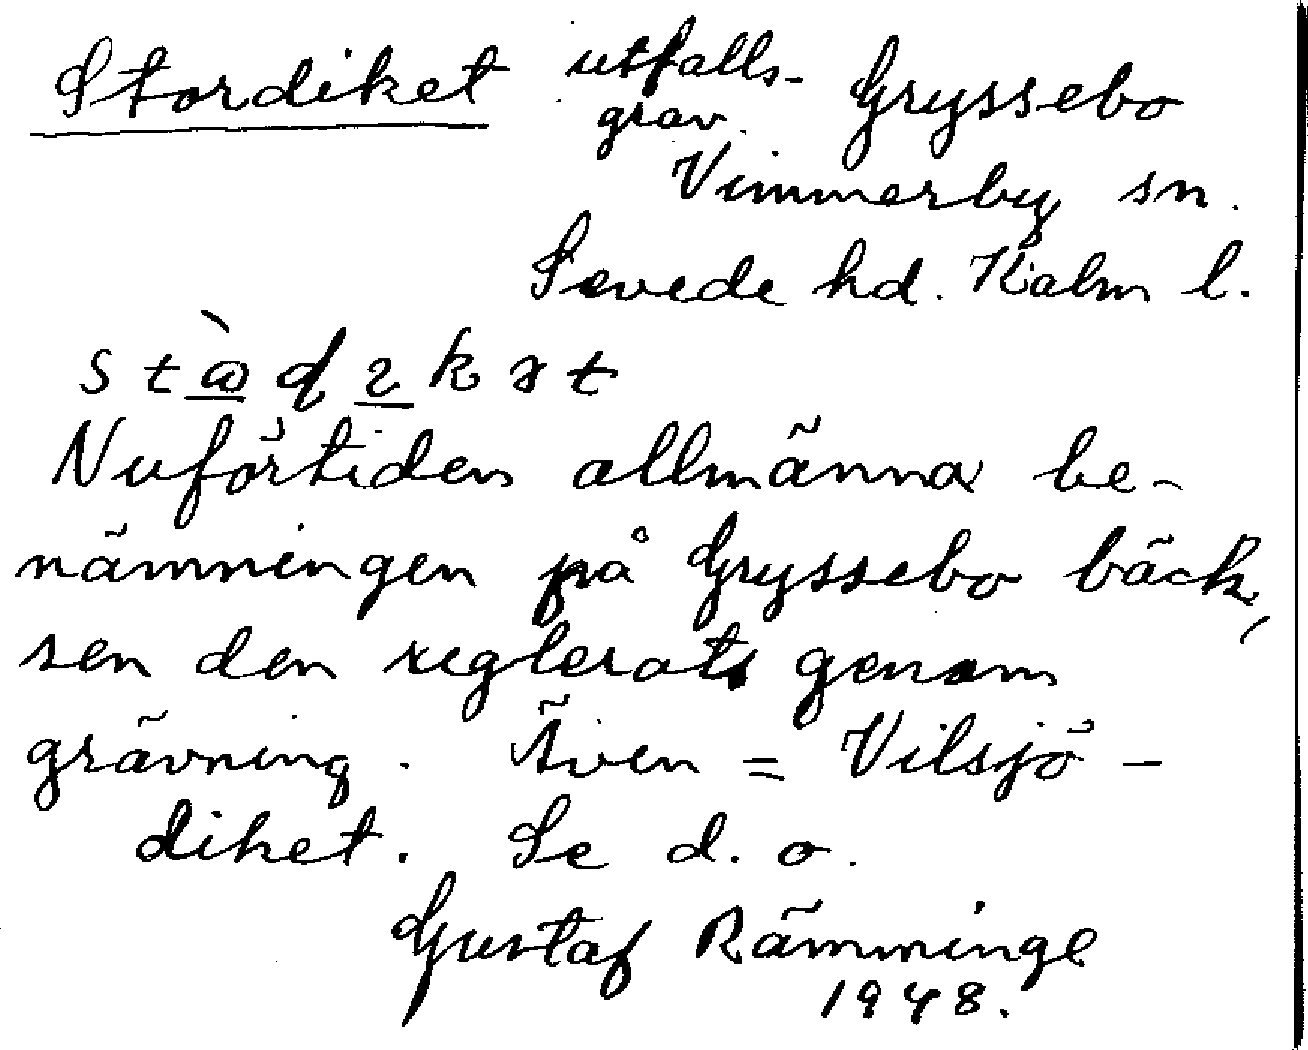 Stordiket utfalls- Gryssebo
grav.
Vimmerby sn.
Sevede hd. Kalm l.
Nuförtiden allmänna be-
nämningen på Gryssebo bäck,
sen den reglerats genom
grävning. Även = Vilsjö-
diket. Se d. o.
Gustaf Rämminge
1948.